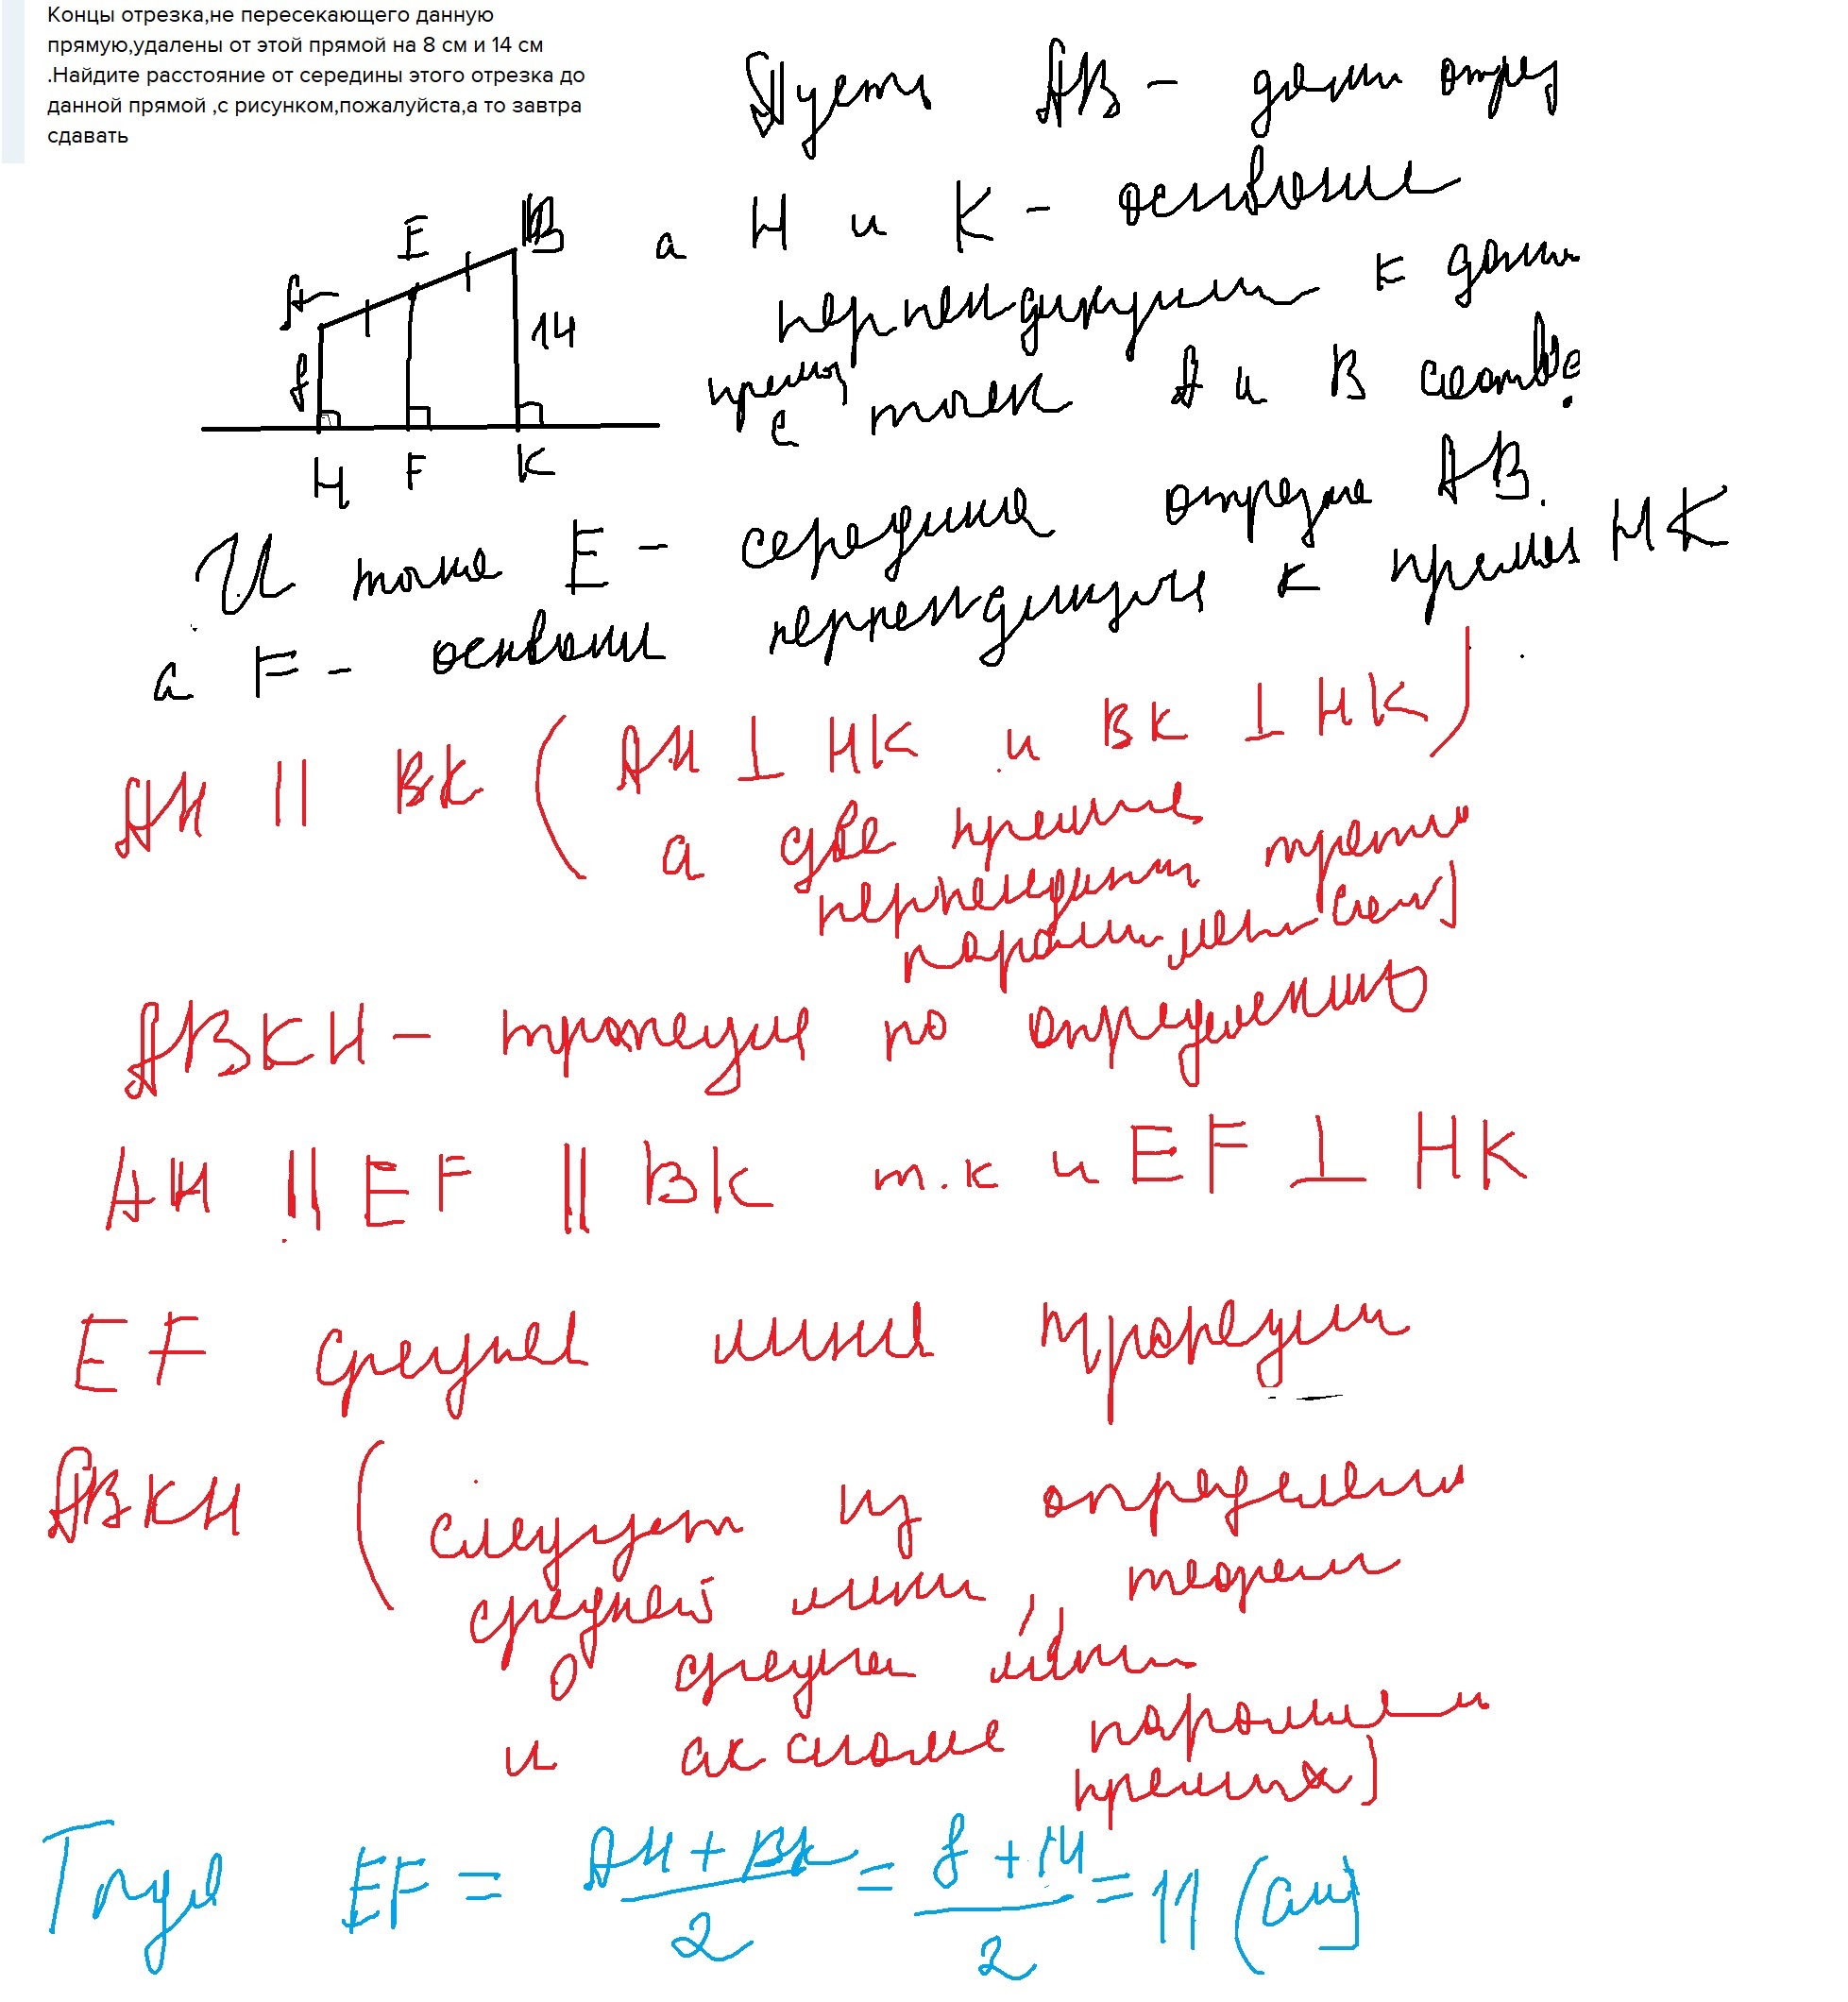 Концы отрезка,не пересекающего данную
прямую,удалены от этой прямой на 8 см и 14 см
.Найдите расстояние от середины этого отрезка до
данной прямой ,с рисунком,пожалуйста,а то завтра
сдавать
Пусть AB - данн отрез
а H и K - основание
перпендикуляр к данн
прямой
с точек A и B соответ.
A E B
8 14
H F K
И точка E - середина отрезка AB.
а F - основани перпендикуляра к прямой HK
AH || BK ( AH ⊥ HK и BK ⊥ HK )
а две прямые
перпендик третье
параллел )
ABKH - трапеция по определению
AH || EF || BK т.к и EF ⊥ HK
EF средней линия трапеции
ABKH ( следует из определени
средней лини , теорем
о средне лини
и аксиоме параллел
прямых )
Тогда EF = AH + BK / 2 = 8 + 14 / 2 = 11 (см)